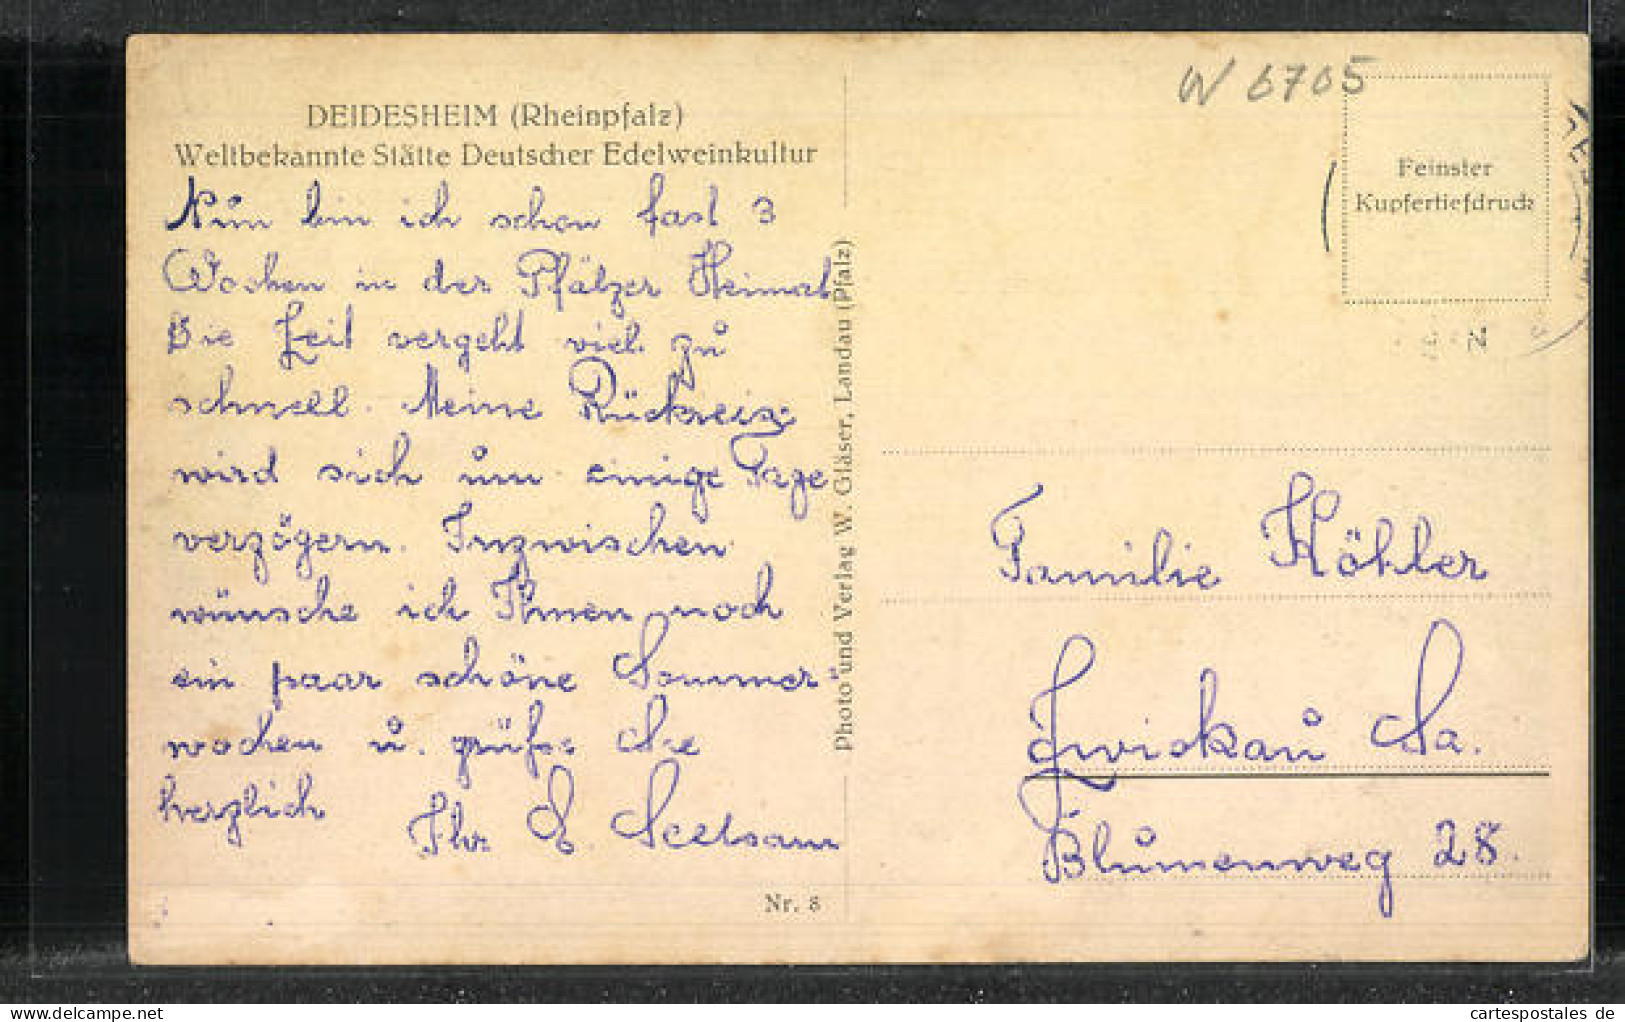 DEIDESHEIM (Rheinpfalz)
Weltbekannte Stätte Deutscher Edelweinkultur
Nun bin ich schon fast 3
Wochen in der Pfälzer Heimat
Die Zeit vergeht viel zu
schnell. Meine Rückreise
wird sich um einige Tage
verzögern. Inzwischen
wünsche ich Ihnen noch
ein paar schöne Sommer-
wochen u. grüße Sie
herzlich Ihr E. Seelsam
Nr. 8
Photo und Verlag W. Gläser, Landau (Pfalz)
W 6705
Feinster
Kupfertiefdruck
Familie Köhler
Zwickau Sa.
Blumenweg 28.
cartespostales de